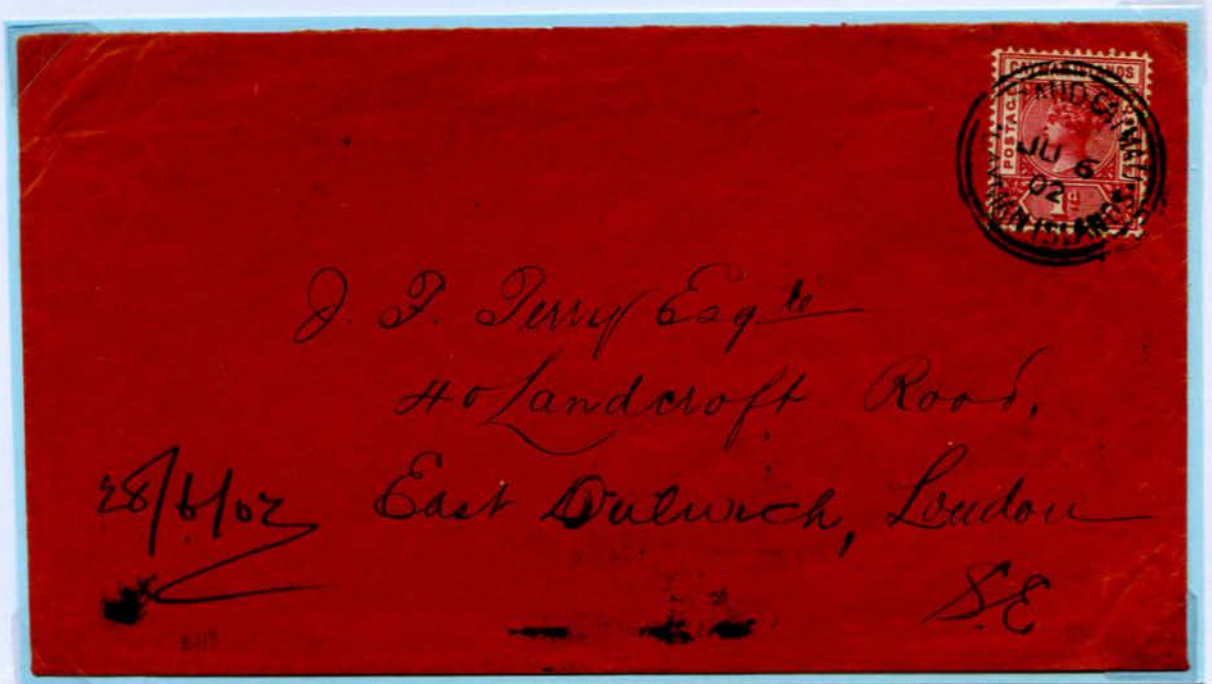 CAYMAN ISLANDS
POSTAGE
1d
GRAND CAYMAN
JU 6
02
CAYMAN ISLANDS
J. P. Perry Esqre
40 Landcroft Road,
East Dulwich, London
S.E
28/6/02